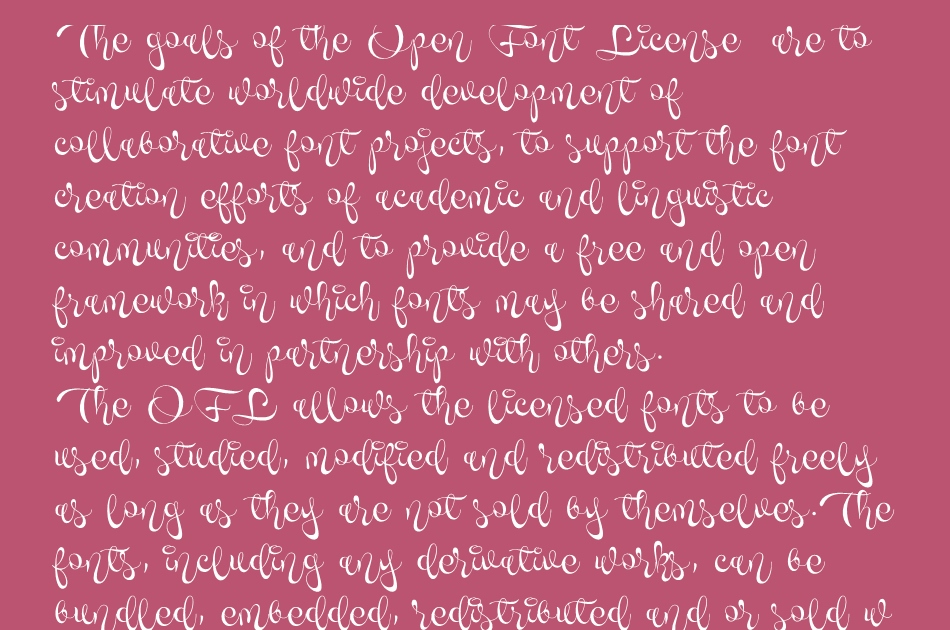 The goals of the Open Font License are to
stimulate worldwide development of
collaborative font projects, to support the font
creation efforts of academic and linguistic
communities, and to provide a free and open
framework in which fonts may be shared and
improved in partnership with others.
The OFL allows the licensed fonts to be
used, studied, modified and redistributed freely
as long as they are not sold by themselves. The
fonts, including any derivative works, can be
bundled, embedded, redistributed and or sold w